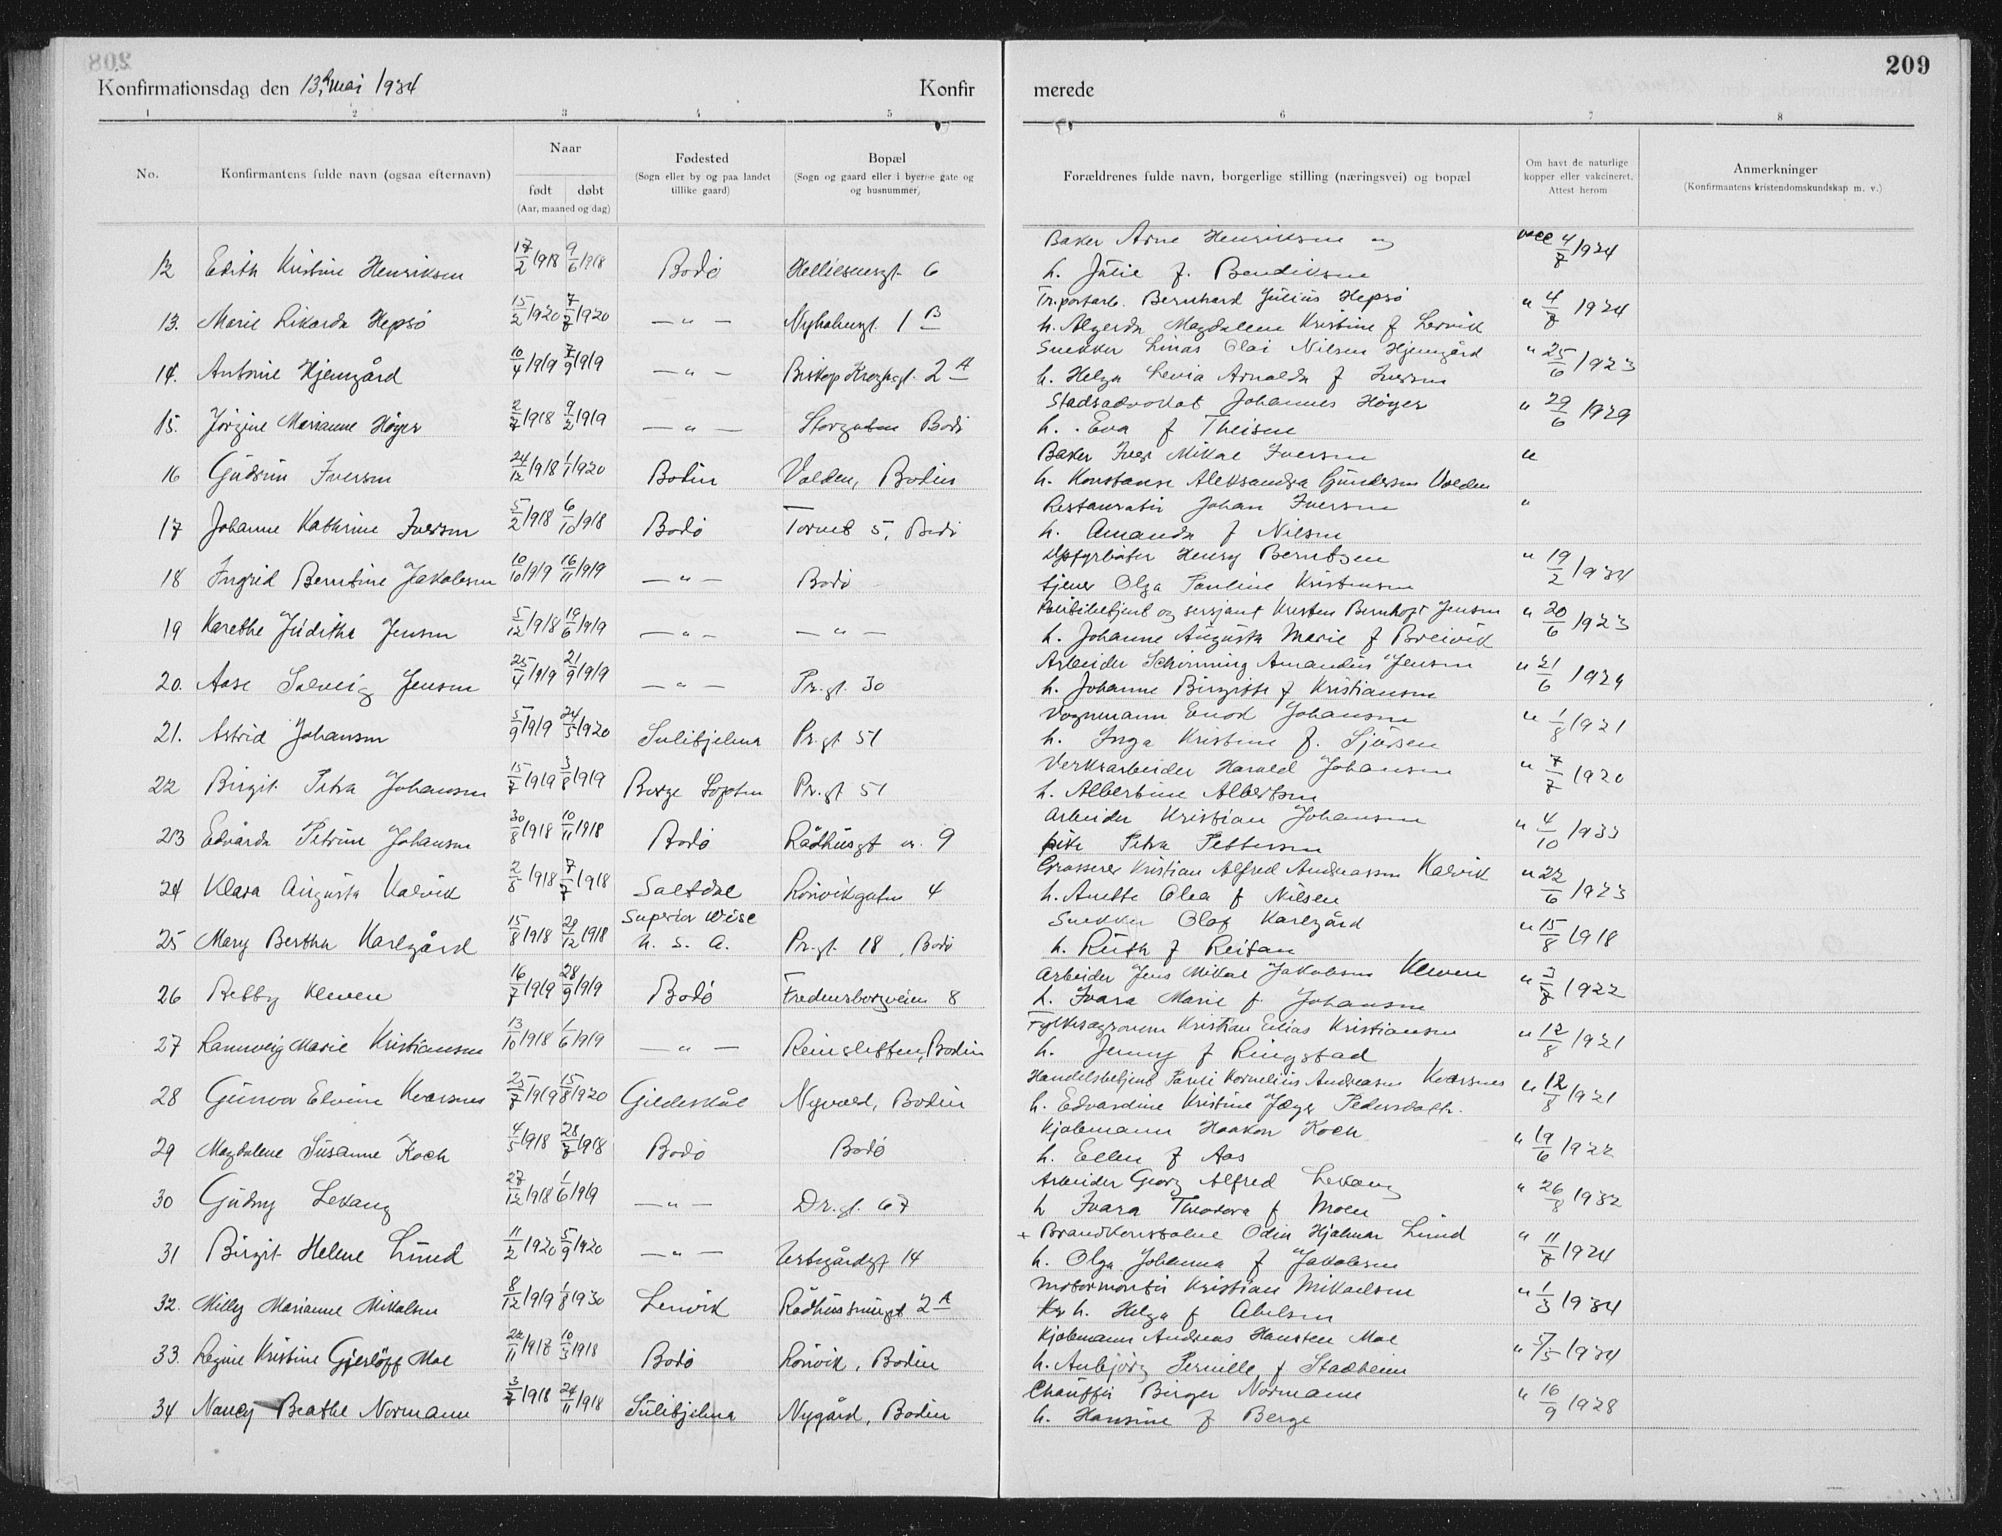 209
Konfirmationsdag den 13. mai 1934 Konfir merede
1 2 3 4 5 6 7 8
No. Konfirmantens fulde navn (ogsaa efternavn) Naar født døbt (Aar, maaned og dag) Fødested (Sogn eller by og paa landet tillike gaard) Bopæl (Sogn og gaard eller i byerne gate og og husnummer) Forældrenes fulde navn, borgerlige stilling (næringsvei) og bopæl Om havt de naturlige kopper eller vakcineret. Attest herom Anmerkninger (Konfirmantens kristendomskundskap m. v.)
Baker Arne Henriksen og
12 Edith Kristine Henriksen 17/2 1918 9/6 1918 Bodø Hellesensgt. 6 h. Julie f. Bendiksen vacc 4/7 1924
Tr.portarb. Bernhard Julius Hepsø
13. Marie Rikarda Hepsø 15/2 1920 7/7 1920 — " — Nyholmsgt. 1 B h. Algerda Magdalena Kristine f Lervik " 4/7 1924
Snekker Linas Olai Nilsen Hjemgård
14. Antonie Hjemgård 10/4 1919 7/9 1919 — " — Biskop Kroghsgt. 2 A h. Helga Levia Arnalda f Iversen " 25/6 1923
Stadsadvokat Johannes Høyer
15. Jørgine Marianne Høyer 2/7 1918 9/2 1919 — " — Storgaten Bodø h. Eva f Theisen " 29/6 1929
Baker Iver Mikal Iversen "
16 Gudrun Iversen 24/12 1918 1/1 1920 Bodin Volden, Bodin h. Konstanse Aleksandra Gundersen Volden
Restauratør Johan Iversen "
17 Johanne Kathrine Iversen 5/2 1918 6/10 1918 Bodø Torvet 5, Bodø h. Amanda f Nilsen
Henry Berntsen
18 Ingrid Berntine Jakobsen 10/10 1919 16/11 1919 — " — Bodø tjener Olga Pauline Kristensen " 19/2 1934
Politibetjent og sersjant Kristen Bernhoft Jensen
19 Karethe Juditha Jensen 5/12 1918 19/6 1919 — " — — " — h. Johanne Augusta Marie f Breivik " 20/6 1923
Arbeider Schønning Amandus Jensen
20. Aase Solveig Jensen 25/4 1919 21/9 1919 — " — Pr.gt. 30 h. Johanne Birgitte f Kristiansen " 21/6 1924
Vognmann Enok Johansen
21. Astrid Johansen 5/9 1919 24/5 1920 Sulitjelma Pr.gt 51 h. Inga Kristine f. Sjursen " 1/8 1921
Verksarbeider Harald Johansen
22 Birgit Petra Johansen 15/7 1919 3/8 1919 Borge Lofoten Pr.gt 51 h. Albertine Albertsen " 7/7 1920
Arbeider Kristian Johansen
23 Edvarda Petrine Johansen 30/8 1918 10/11 1918 Bodø Rådhusgt nr. 9 pike Petra Pettersen " 4/10 1933
Grosserer Kristian Alfred Andreassen Kalvik
24 Klara Augusta Kalvik 2/8 1918 7/7 1918 Saltdal Rønvikgaten 4 h. Anette Olea f Nilsen " 22/6 1923
Superior Wisc Snekker Olof Karlgård
25 Mary Bertha Karlgård 15/8 1918 21/12 1918 U. S. A. Pr.gt. 18, Bodø h. Ruth f Reitan " 15/8 1918
Arbeider Jens Mikal Jakobsen Kleven
26 Rebby Kleven 16/7 1919 28/9 1919 Bodø Fredensborgveien 8 h. Ivara Marie f Johansen " 3/7 1922
Fylkesagronom Kristian Elias Kristiansen
27 Rannveig Marie Kristiansen 13/10 1918 1/6 1919 — " — Reinsletten, Bodin h. Jenny f Ringstad " 12/8 1921
Handelsbetjent Pauli Kornelius Andreasen Kvarsnes
28 Gunvor Elvine Kvarsnes 25/7 1919 15/8 1920 Gildeskål Nyvold, Bodin h. Edvardine Kristine Jæger Pedersdatr. " 12/8 1921
Kjøbmann Haakon Koch
29 Magdalene Susanne Koch 4/5 1918 28/7 1918 Bodø Bodø h. Ellen f Aas " 19/6 1922
Arbeider Georg Alfred Lekang
30 Gudny Lekang 27/12 1918 1/6 1919 — " — Dr.gt. 67 h Ivara Theodora f Moen " 26/8 1932
+ Brandkonstabel Odin Hjalmar Lund
31 Birgit Helene Lund 11/2 1920 5/9 1920 — " — Urtegårdgt 14 h. Olga Johanna f Jakobsen " 11/7 1924
Motormontør Kristian Mikalsen
32. Milly Marianne Mikalsen 8/12 1919 1/8 1930 Lenvik Rådhussmugt 2 A h. Helga f Abelsen " 1/3 1934
Kjøbmann Andreas Hansteen Moe
33. Regine Kristine Gjerløff Moe 22/11 1917 10/3 1918 Bodø Rønvik, Bodin h. Anbjørg Pernille f Stadheim " 5/5 1934
Chauffør Birger Normann
34 Nancy Beathe Normann 3/7 1918 24/11 1918 Sulitjelma Nygård, Bodin h. Hansine f Berge " 16/9 1928